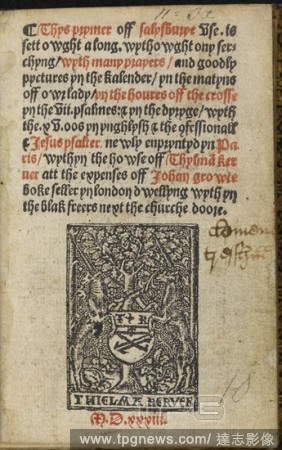 ¶Thys prymer off salysburye vse. is
sett owght along. wythowght ony ser-
chyng/wyth many prayers/and goodly
pyctures yn the kalender/yn the matyns
off owr lady/yn the houres off the crosse
yn the vii. psalmes: & yn the dyryge/wyth
the. xv. oos yn ynglysh & the cõfessionall
& Jesus psalter. newly enprynted yn Pa-
ris/wythyn the howse off/Thylmã ker-
uer att the expenses off Johan growte
boke seller yn london dwellyng wyth yn
the blak freers next the churche doore.
T K
THIELMA KERVER
M.D.xxxiii.
www.tpgnews.com/ 達志影像